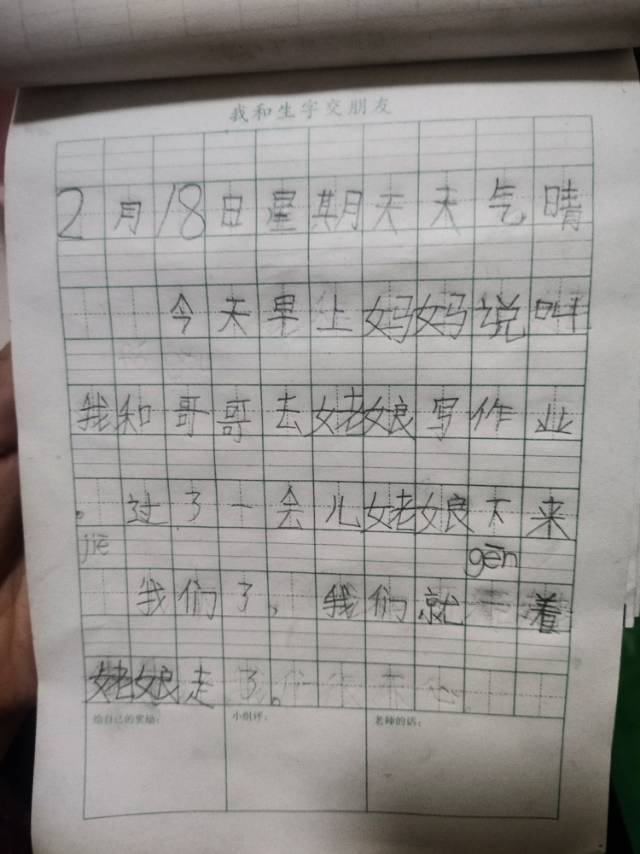 我和生字交朋友
2月18日星期天天气晴
今天早上妈妈说叫
我和哥哥去姥娘写作业
。过了一会儿姥娘下来
jiē gēn
我们了。我们就着
姥娘走了。
给自己的奖励: 小组评: 老师的话: